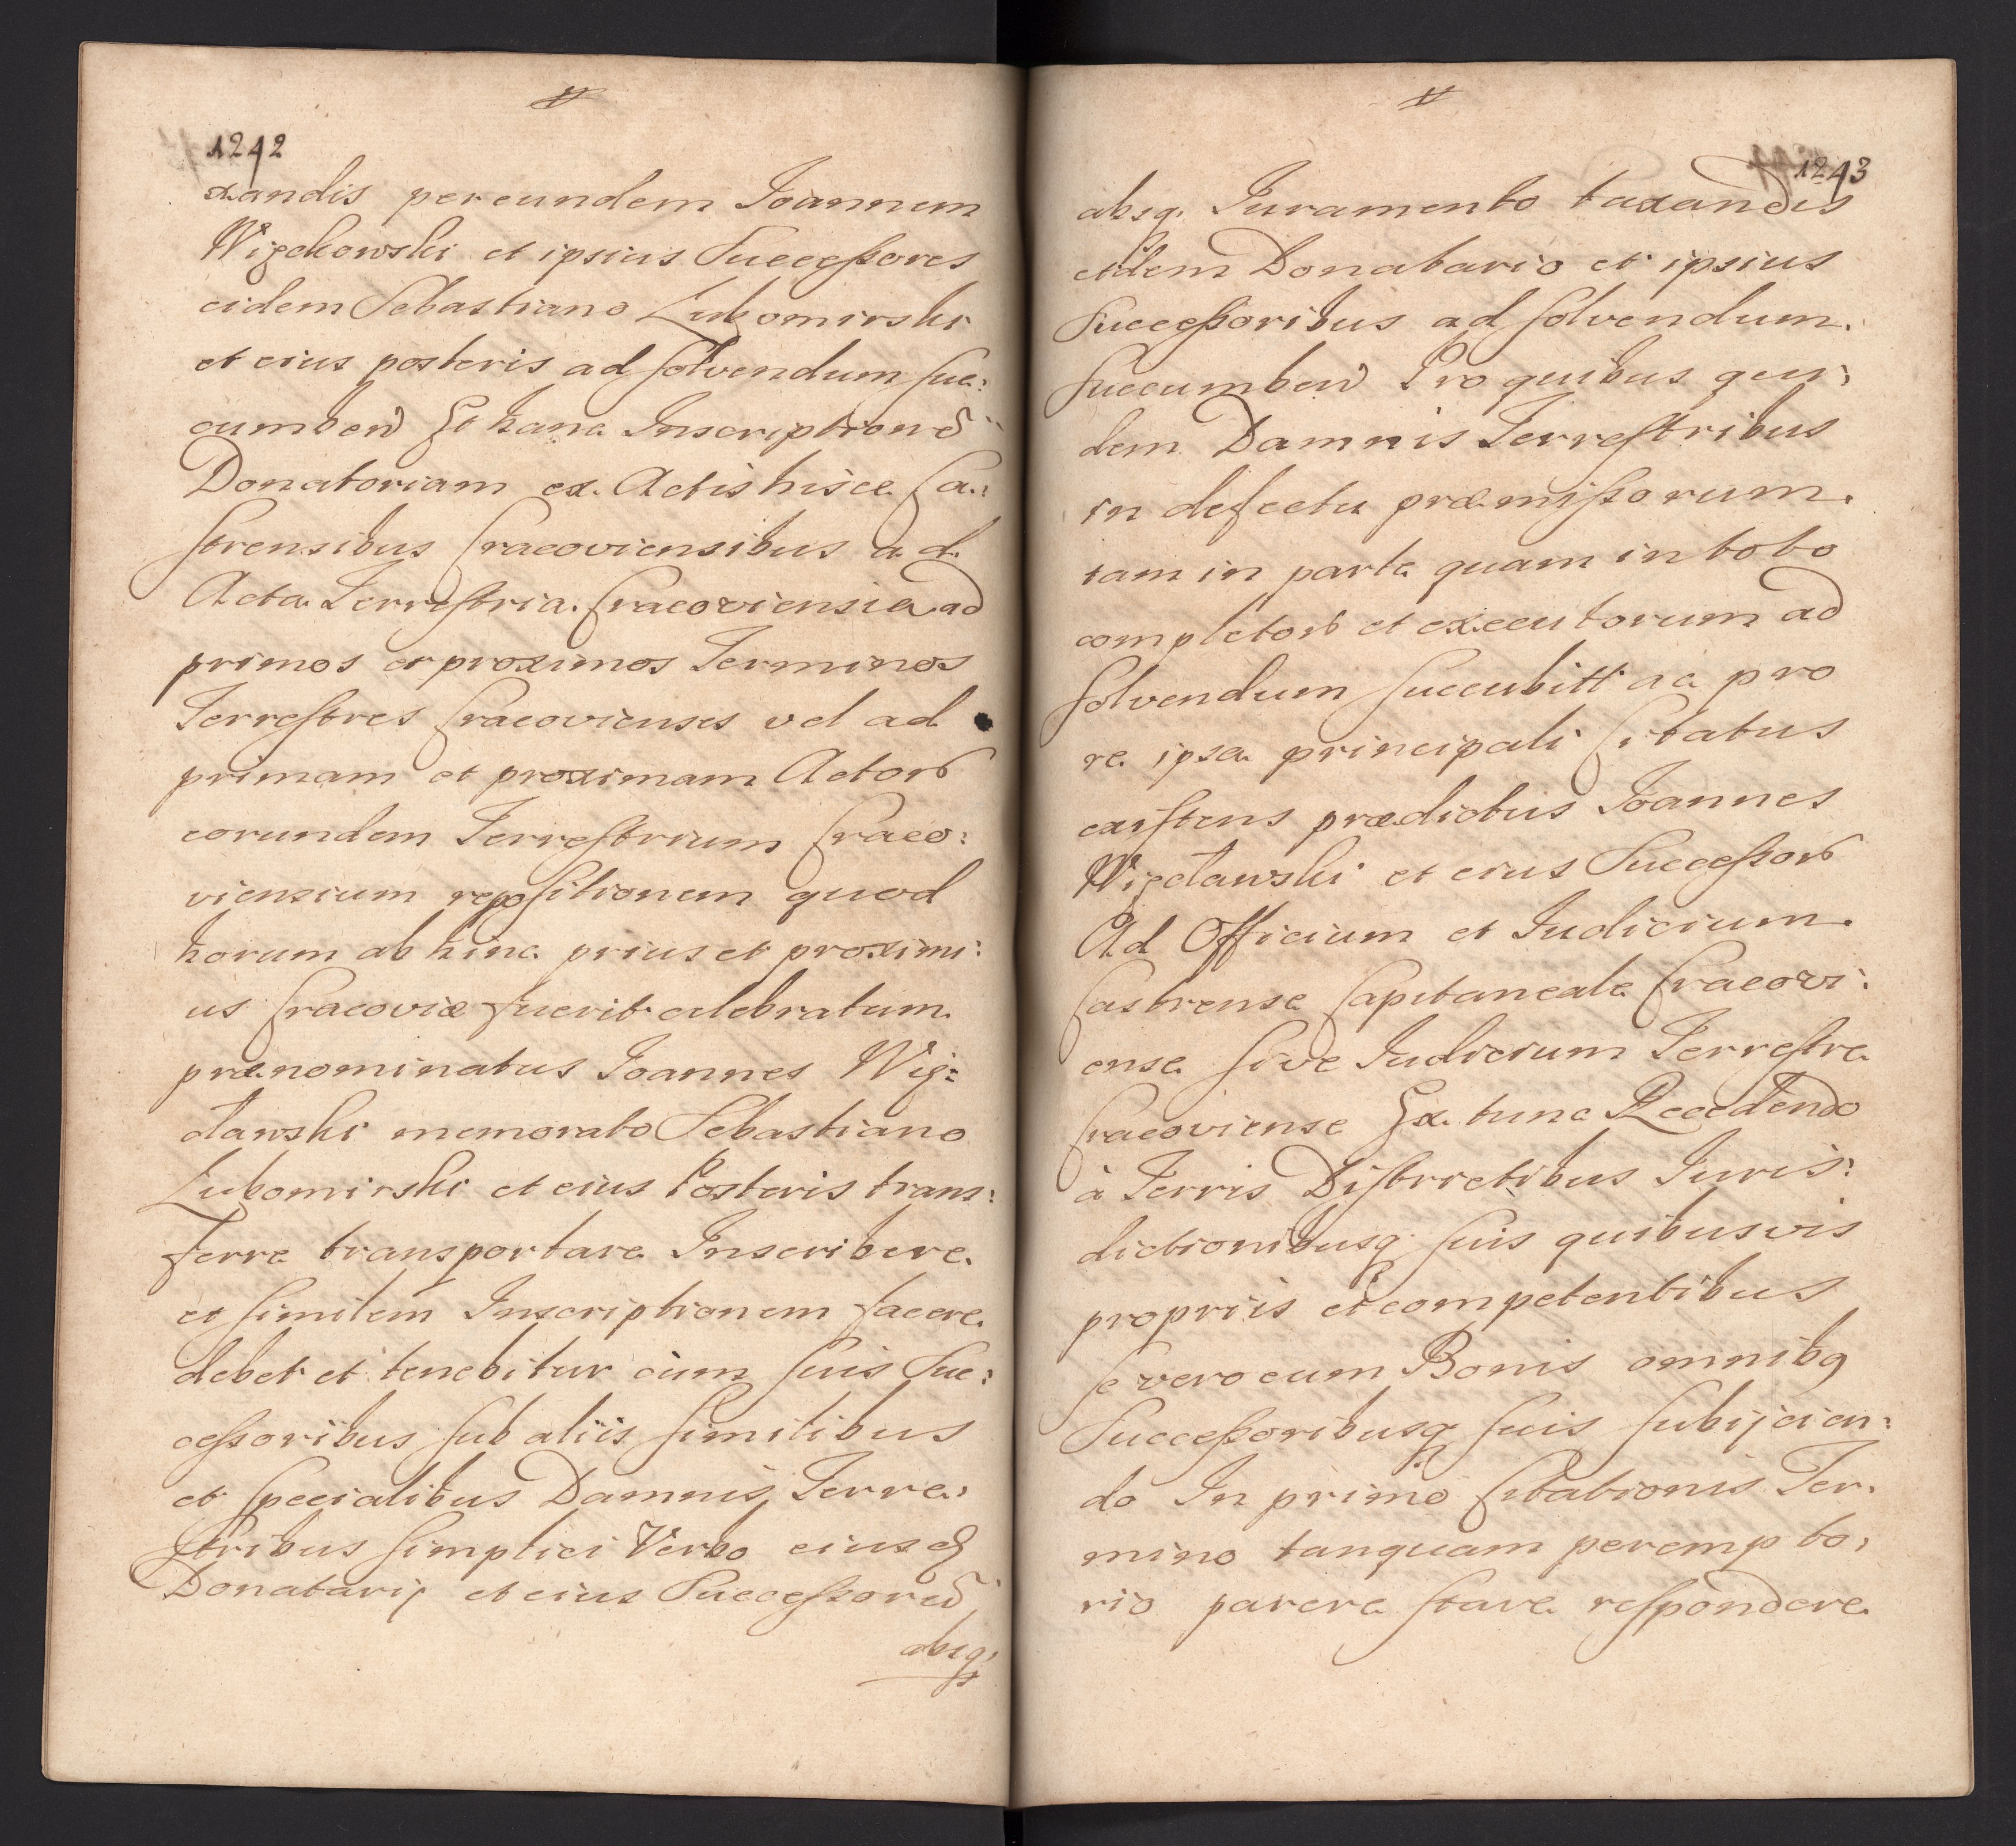 1242
xandis per eundem Joannem
Wizchowski et ipsius Successores
eidem Sebastiano Lubomirski
et eius posteris ad solvendum suc:
cumben Et hanc Inscription
Donatoriam ex Actis hisce Ca:
strensibus Cracoviensibus ad
Acta Terrestria Cracoviensia ad
primos et proximos Terminos
Terrestres Cracovienses vel ad
primam et proximam Actor
eorundem Terrestrium Craco:
viensium repositionem quod
horum ab hinc prius et proximi:
us Cracoviæ fuerit celebratum
prænominatus Joannes Wiz:
dawski memorato Sebastiano
Lubomirski et eius Posteris trans:
ferre transportare Inscribere
et similem Inscriptionem facere
debet et tenebitur cum suis Suc:
cessoribus sub aliis similibus
et specialibus Damnis Terre:
stribus simplici Verbo eiusd
Donatarij et eius Successored
absq
1243
absq. Juramento taxandis
eidem Donatario et ipsius
Successoribus ad solvendum
succumben Pro quibus qui:
dem Damnis Terrestribus
in defectu præmissorum
tam in parte quam in toto
completor et executorum ad
solvendum succubitt ac pro
re ipsa principali Citatus
existens prædictus Joannes
Wizdawski et eius Successor
Ad Officium et Judicium
Castrense Capitaneale Cracovi:
ense sive Judicium Terrestre
Cracoviense Ex tunc Recedendo
à Terris Districtibus Juris:
dictionibusq suis quibusvis
propriis et competentibus
se vero cum Bonis omnibq
Successoribusq suis subijcien:
do In primo Citationis Ter:
mino tanquam perempto:
rio parere stare respondere